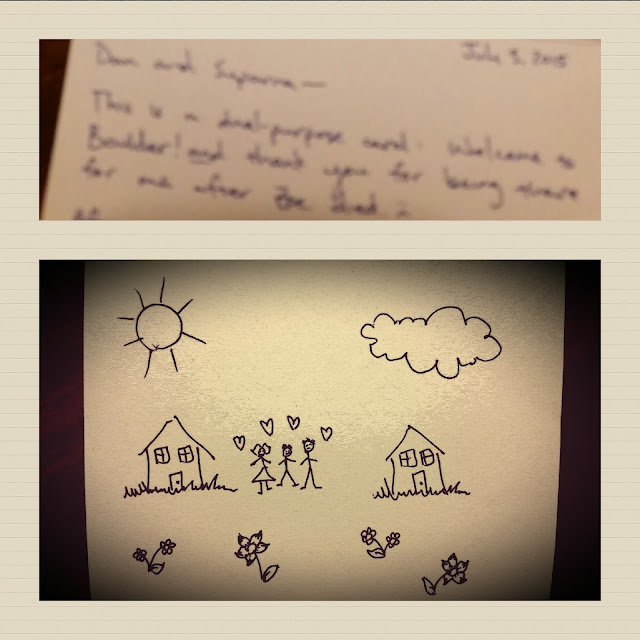 July 3, 2015
Dan and Suparna—
This is a dual-purpose card: Welcome to
Boulder! and thank you for being there
for me after Zoe died.